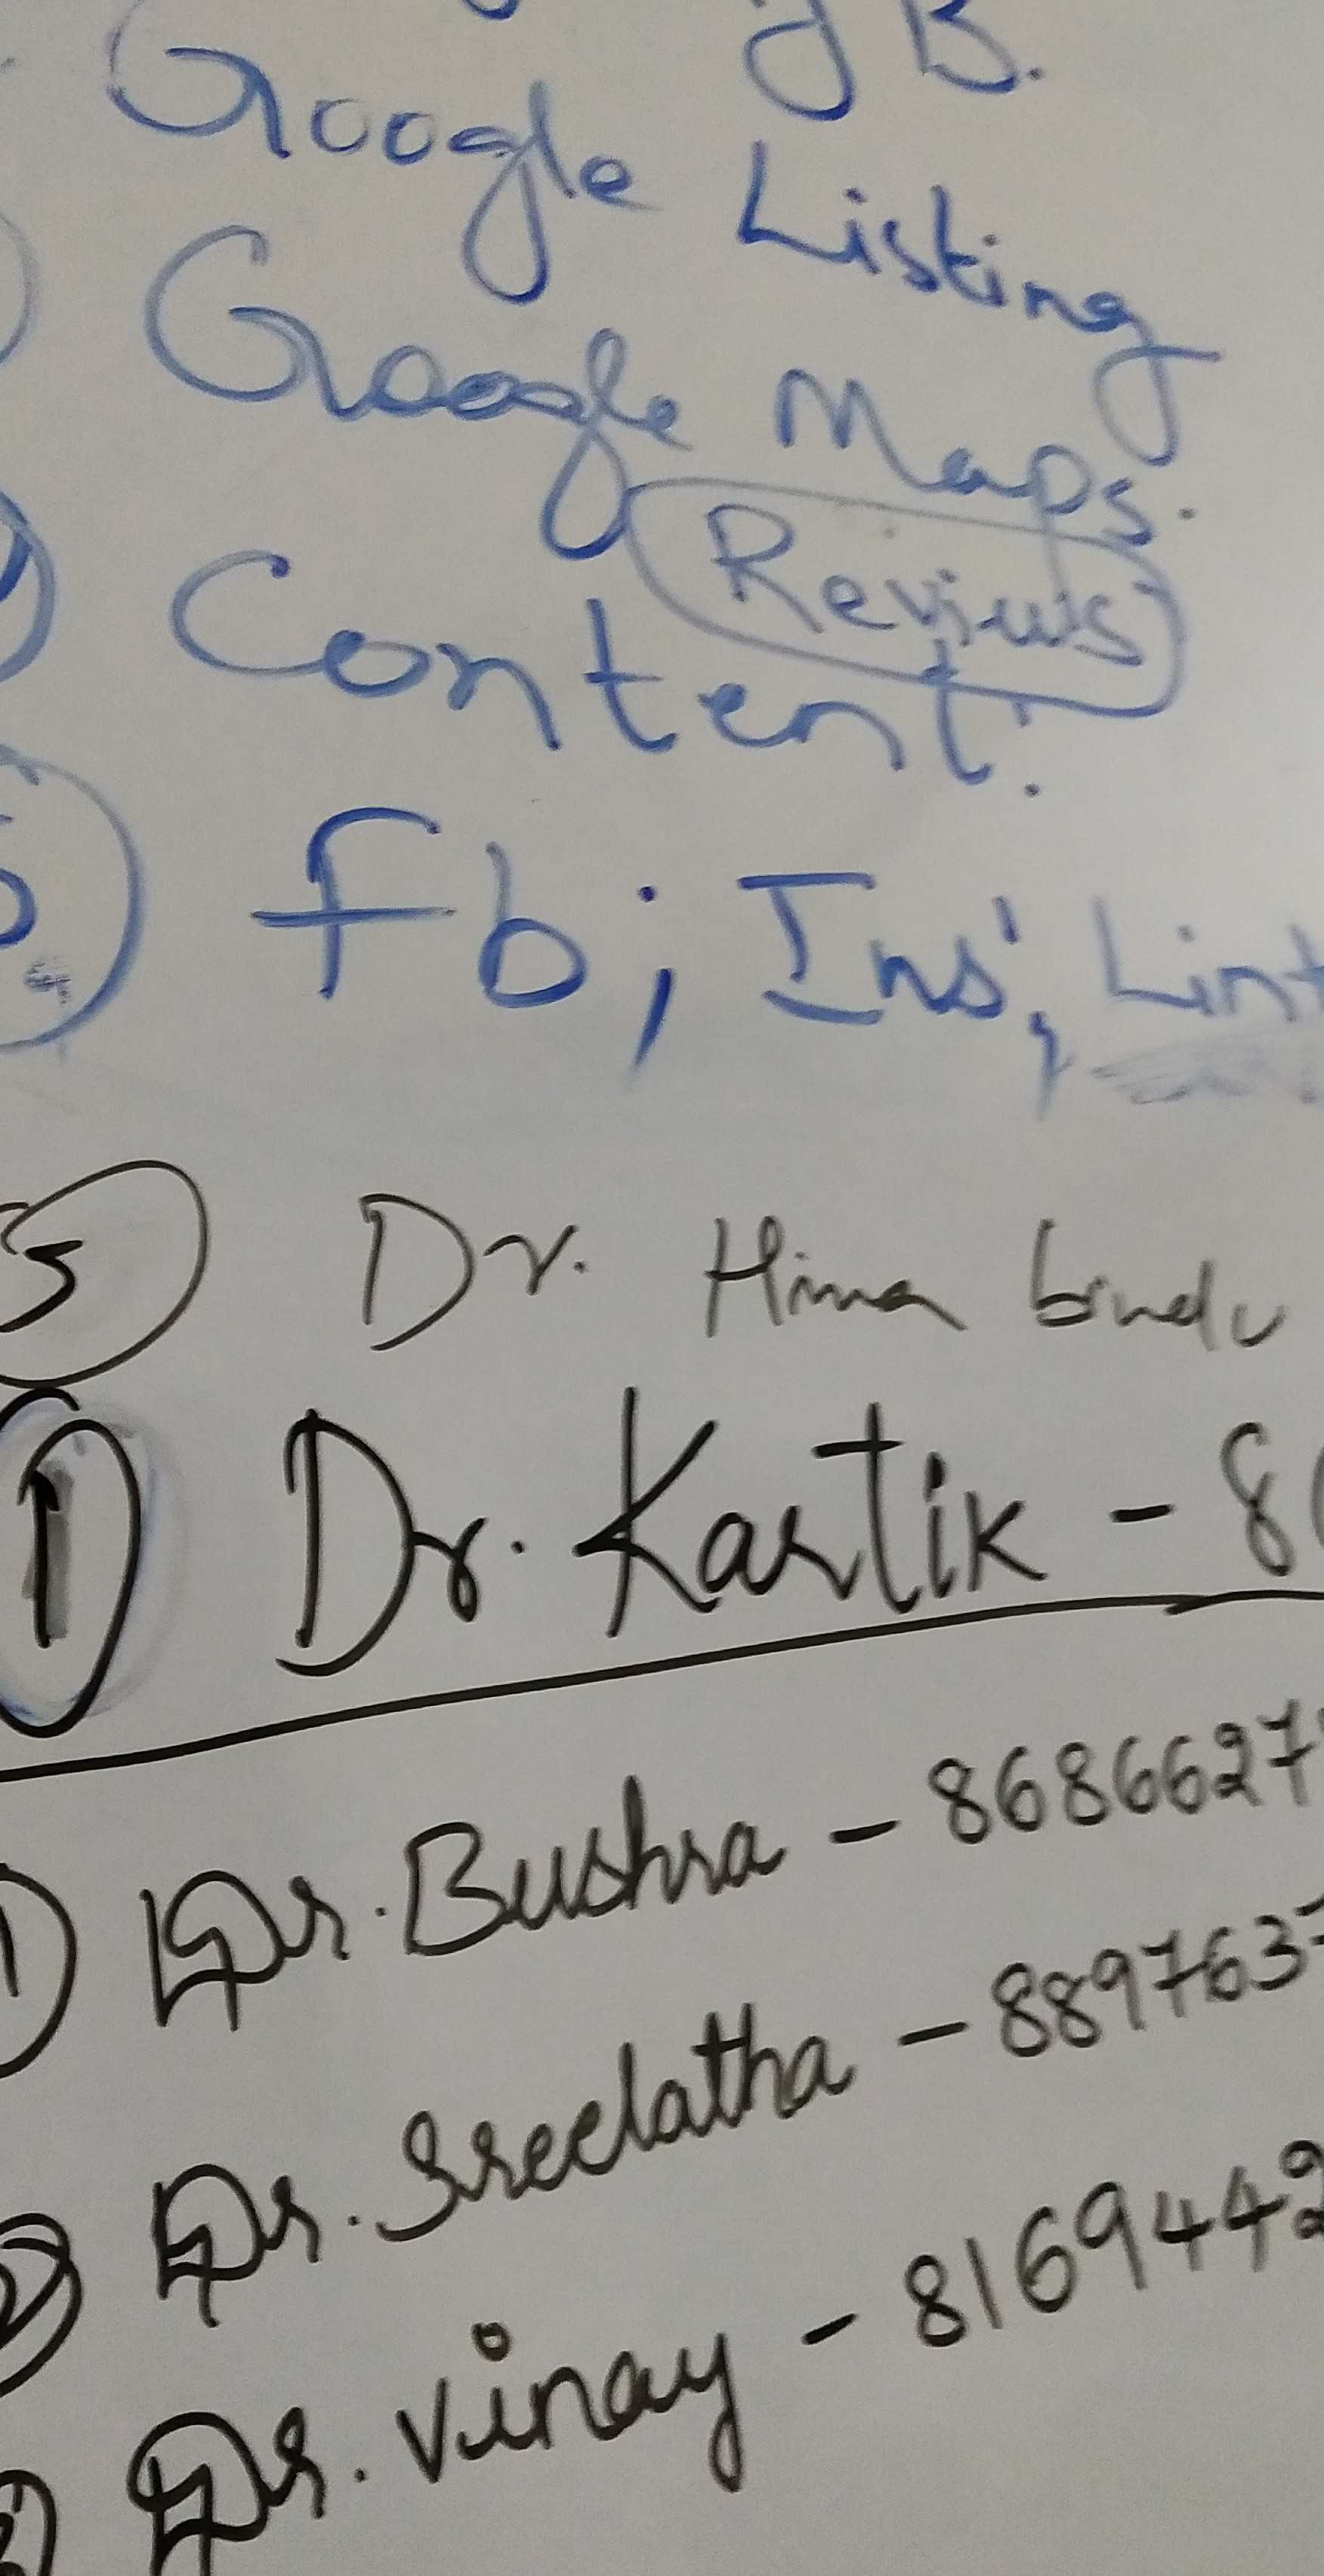 B.
Google Listing
Google Maps.
Reviws
Content.
fb; Ins', Lint
5 Dr. Hima bindu
1 Dr. Kartik - 8
1 Dr. Bushra - 8686627
2 Dr. Sreelatha - 889763
Dr. Vinay - 8169442